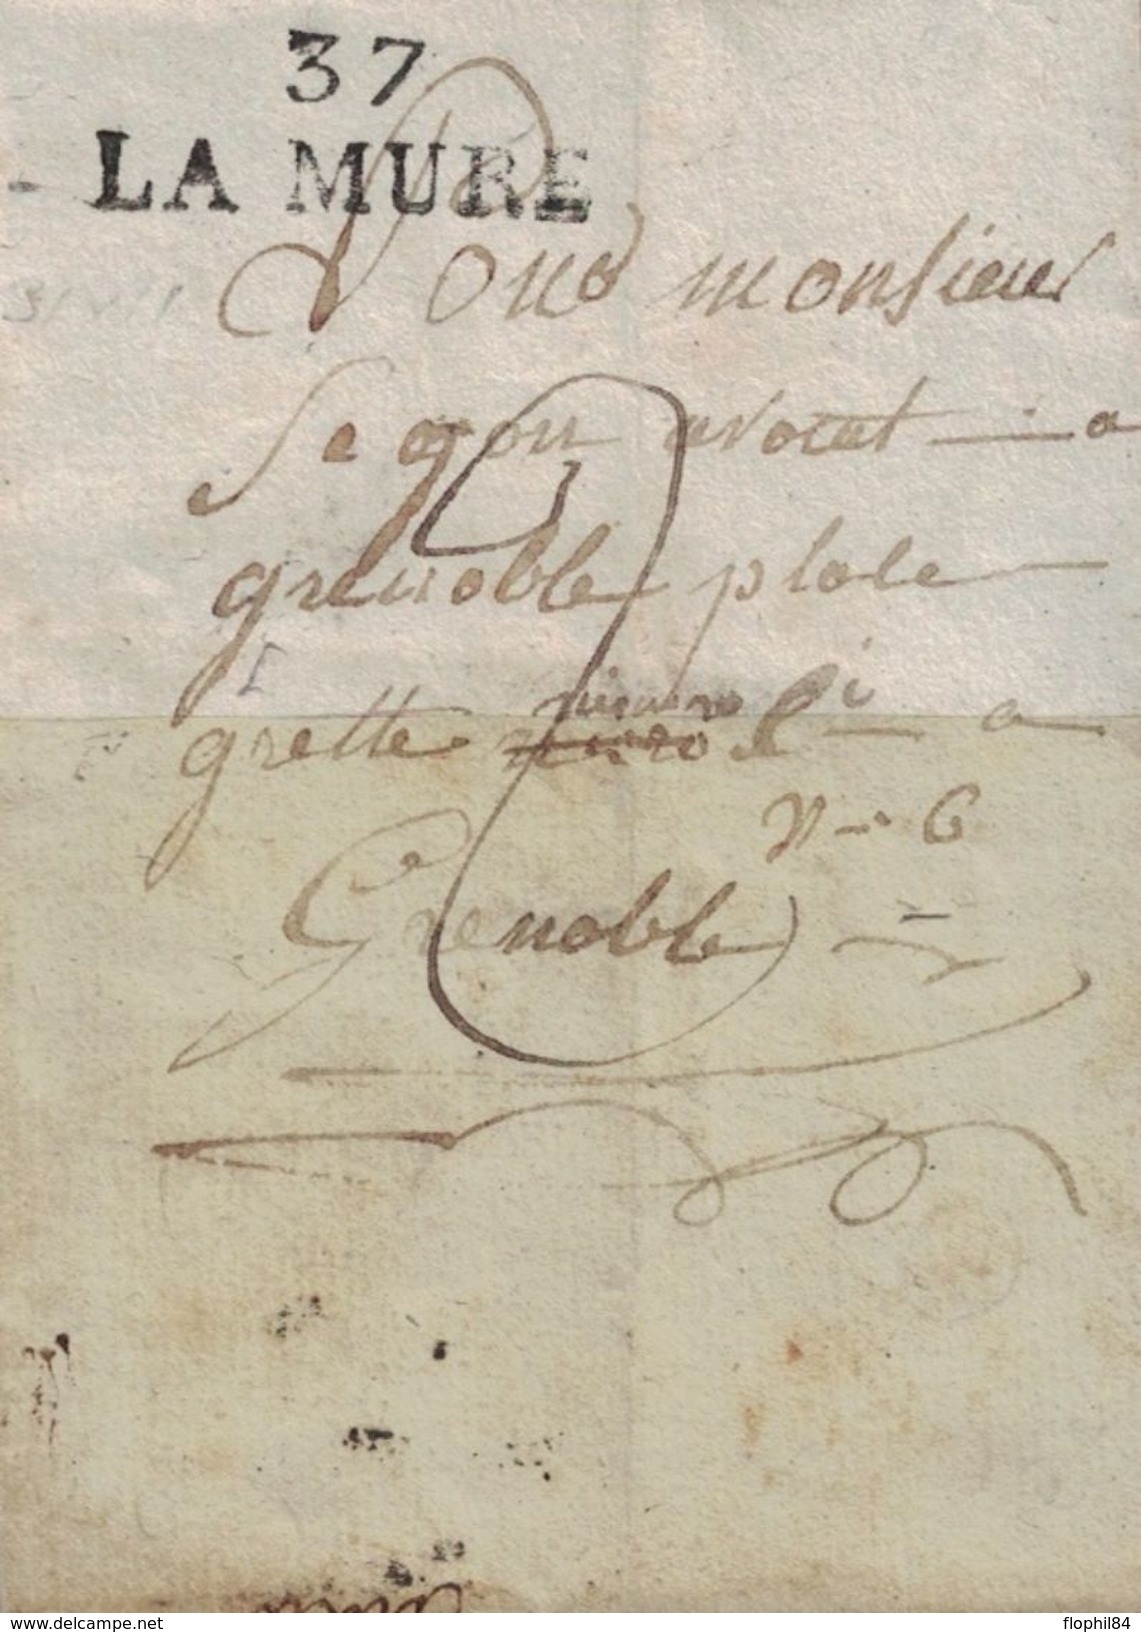 37
LA MURE
monsieur
Segon avocat a
grenoble place
grette numero
a
N- 6
Grenoble
www.delcampe.net
flophil84